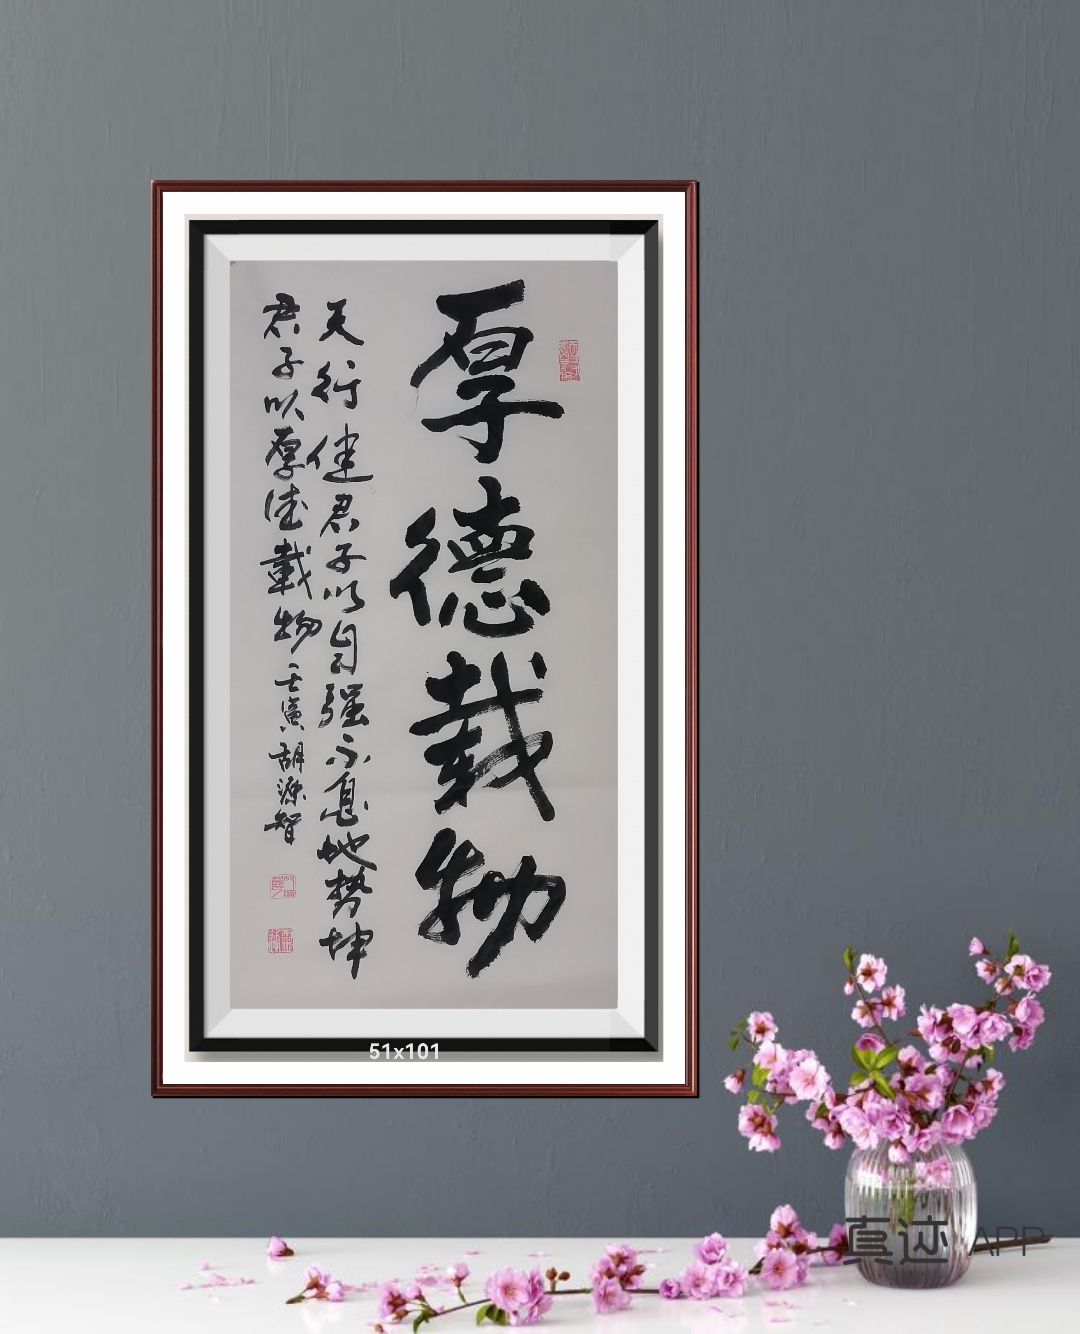 厚德载物
天行健君子以自强不息地势坤
君子以厚德載物壬寅胡源智
51x101
真迹 APP